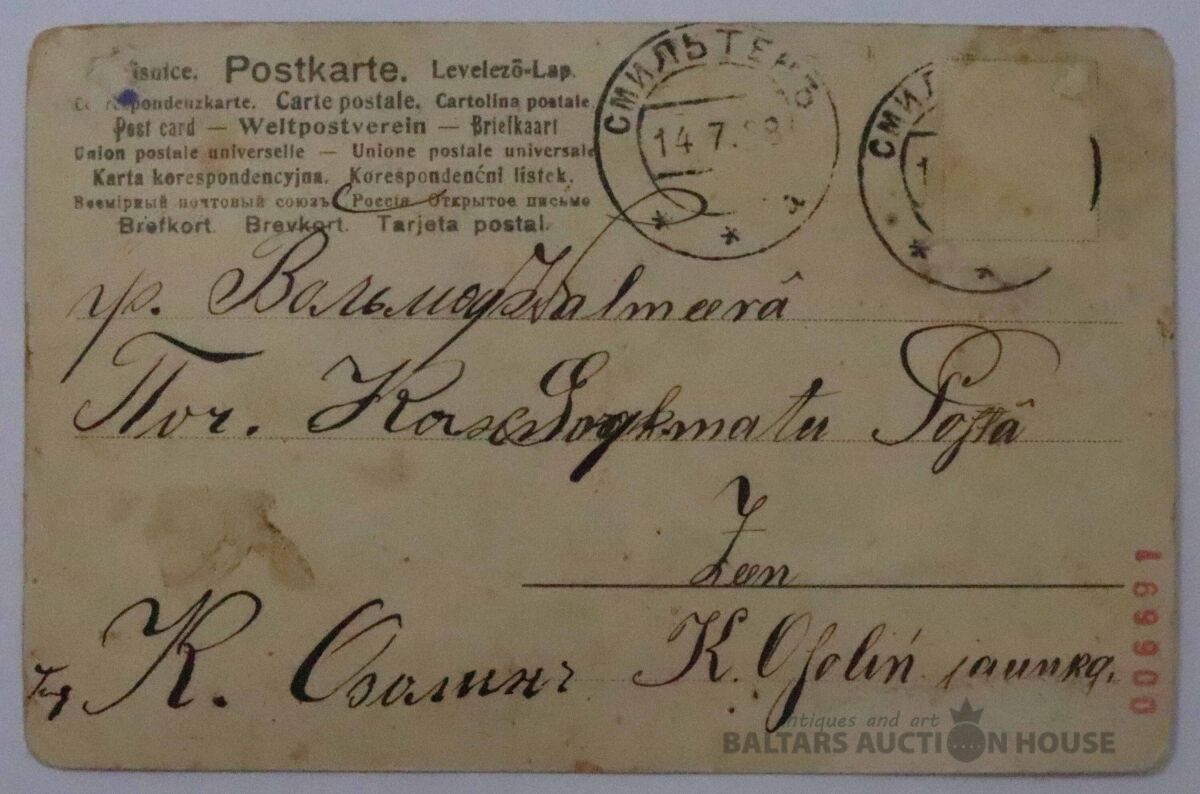 Postkarte. Levelező-Lap.
Correspondenzkarte. Carte postale. Cartolina postale.
Post card — Weltpostverein — Briefkaart
Union postale universelle — Unione postale universale
Karta korespondencyjna. Korespondenční lístek.
Всемірный почтовый союзъ Россія Открытое письмо
Brefkort. Brevkort. Tarjeta postal.
СМИЛЬТЕНЪ
14 7. 08
а
СМИЛ
гр. Вольмар Walmeerâ
Поч. Sogkmatu Postâ
Zeen
К. Озолинъ K. Osoliń jaunkg.
006691
antiques and art
BALTARS AUCTION HOUSE